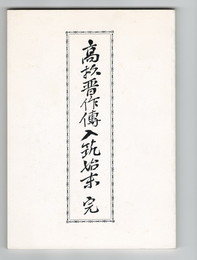 高杦晋作傳入筑始末 完